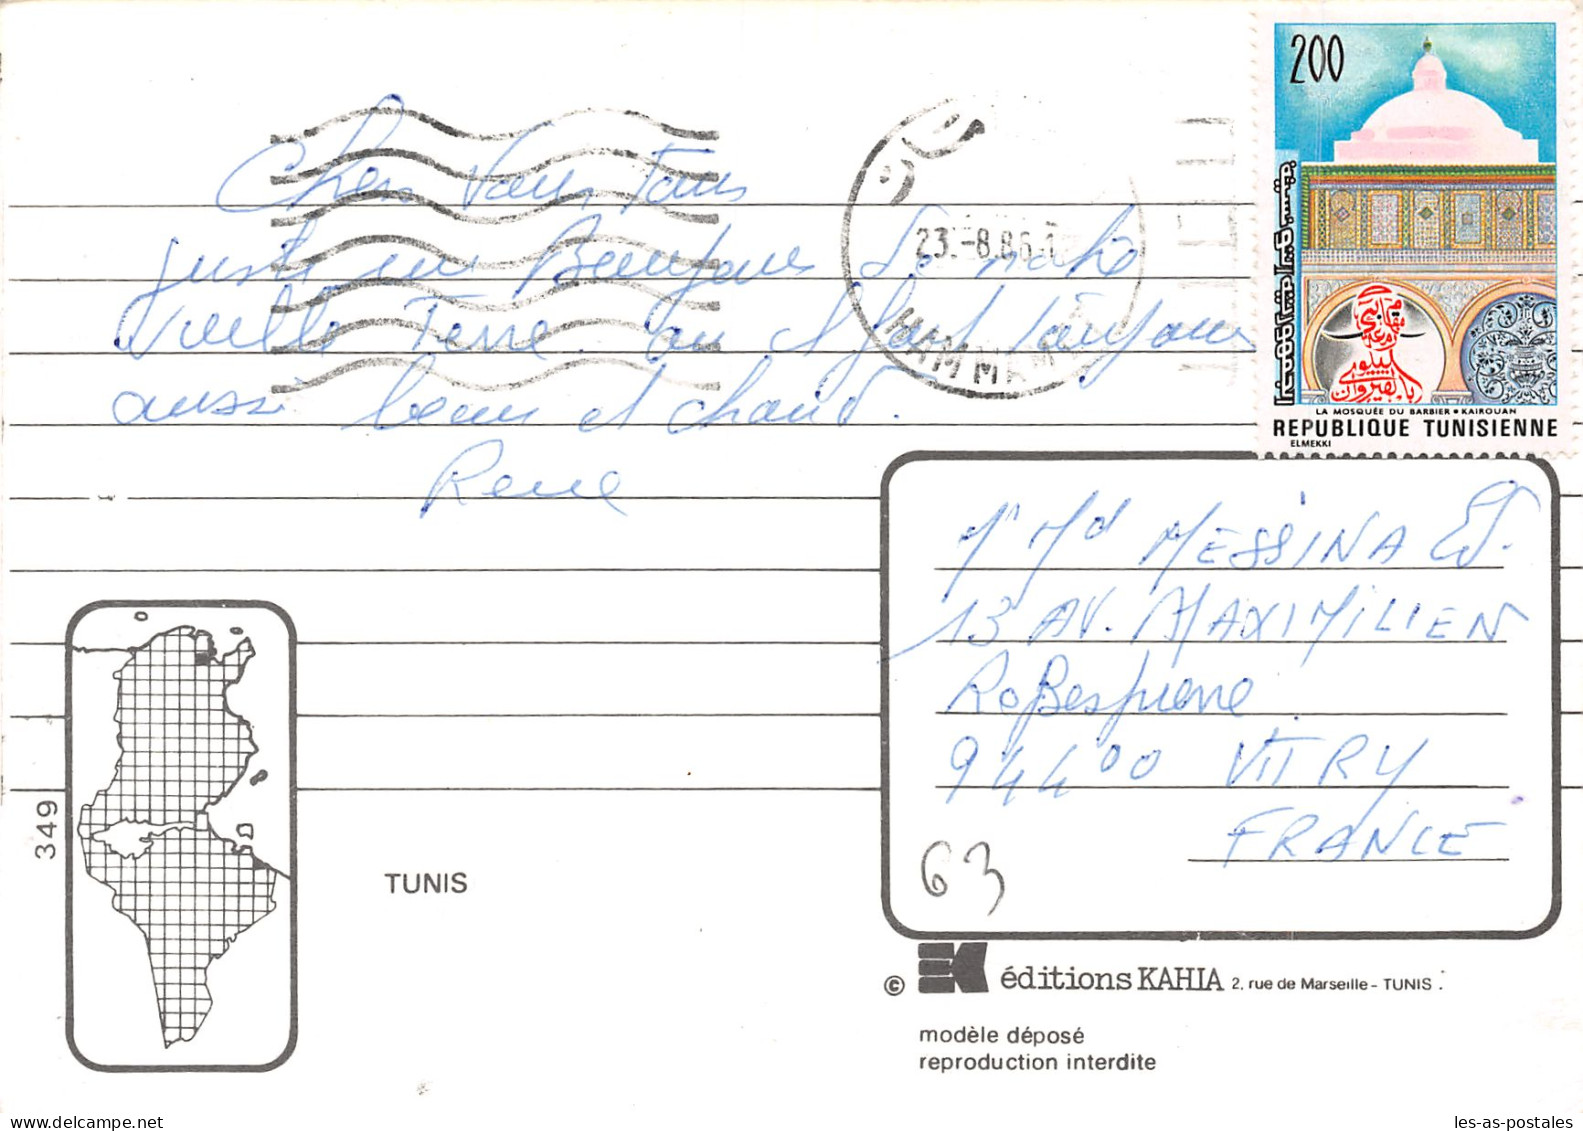 Chers Vous Tous
juste un Bonjour de notre
vieille Terre où il fait toujours
aussi beau et chaud.
René
200
LA MOSQUÉE DU BARBIER • KAIROUAN
REPUBLIQUE TUNISIENNE
ELMEKKI
23.-8.86.1
HAMMAM
Mr Md MESSINA Ed.
13 AV. MAXIMILIEN
RoBespierre
94400 VITRY
FRANCE
63
349
TUNIS
© EK éditions KAHIA 2, rue de Marseille - TUNIS
modèle déposé
reproduction interdite
delcampe.net
les-as-postales